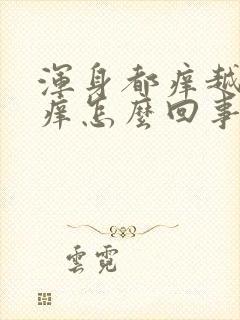 渾身都癢越
癢怎麼回事
雲霓